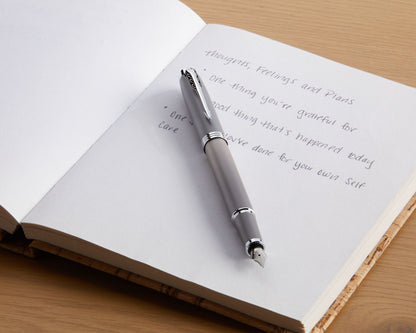 Thoughts, Feelings and Plans
• One thing you're grateful for
good thing that's happened today
• One you've done for your own self
care